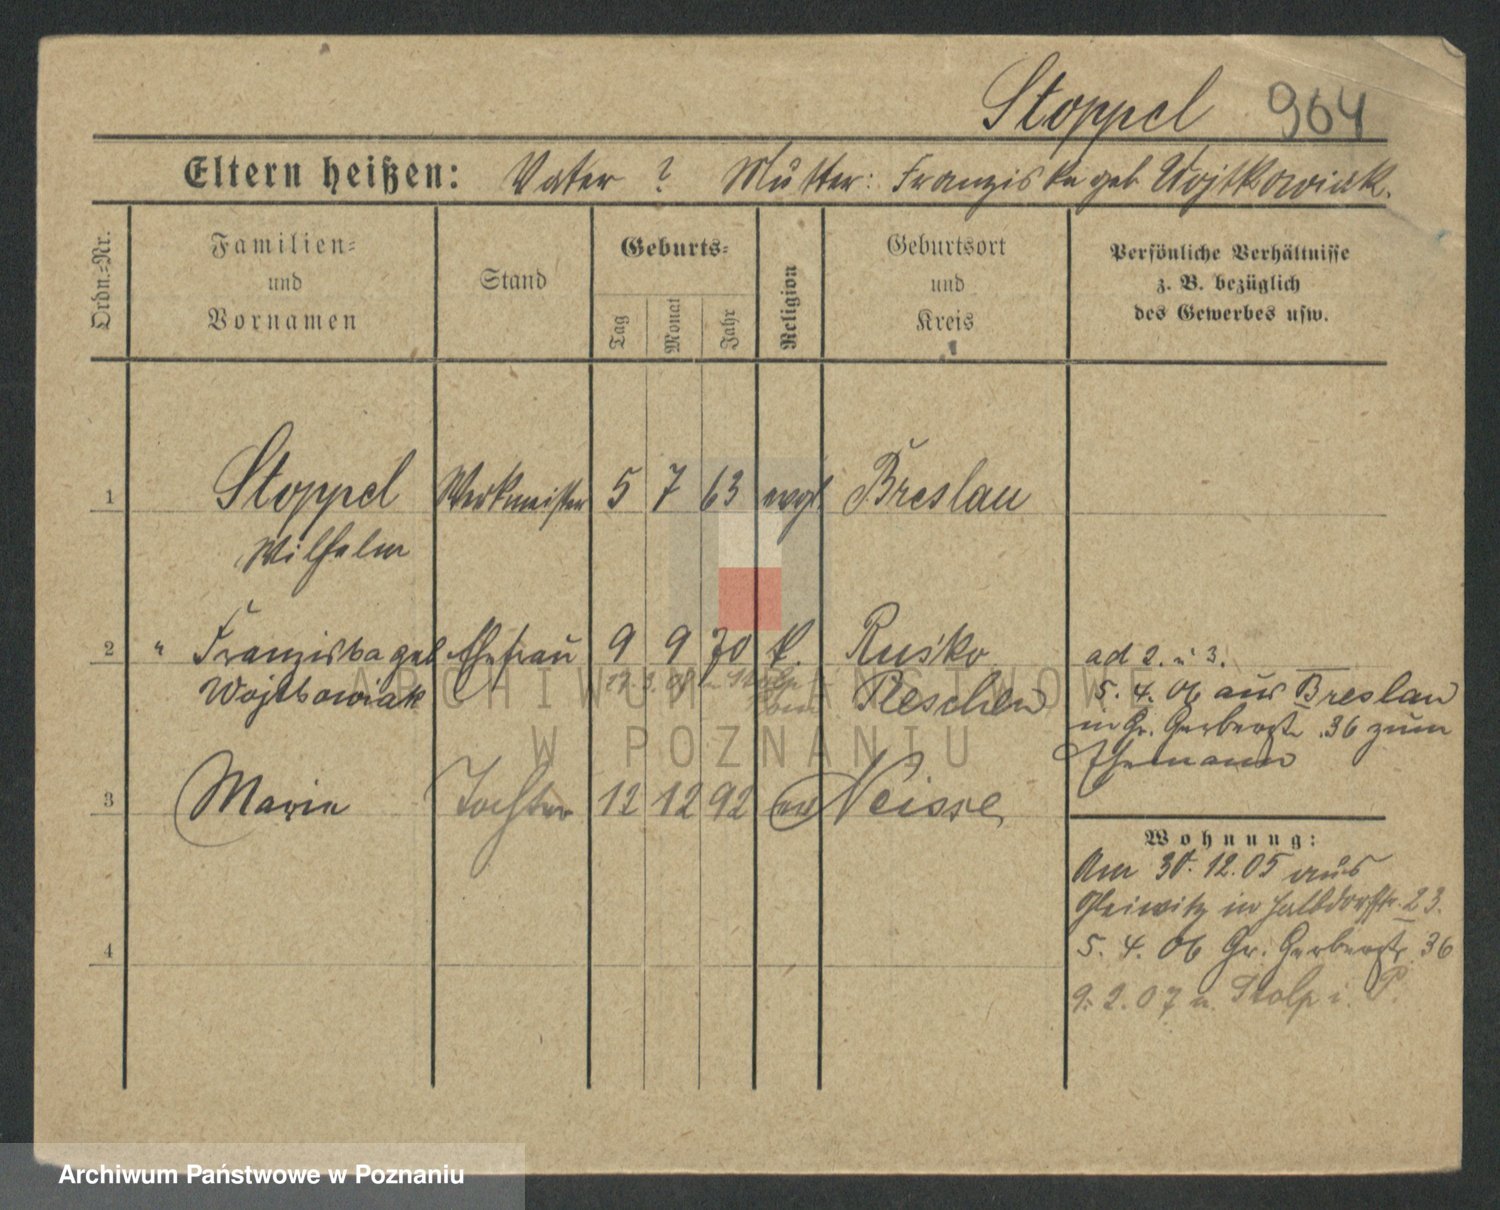 Stoppel 964
Eltern heißen: Vater ? Mutter: Franziska geb Wojtkowiak.
Ordn.-Nr.
Familien-
und
Vornamen
Stand
Geburts-
Tag
Monat
Jahr
Religion
Geburtsort
und
Kreis
Persönliche Verhältnisse
z. B. bezüglich
des Gewerbes usw.
1 Stoppel Werkmeister 5 7 63 evgl Breslau
Wilhelm
2 " Franziska geb Ehefrau 9 9 70 k. Rusko
Wojtkowiak Pleschen
ad 2. u 3.
5. 4. 06 aus Breslau
in Gr. Gerberstr. 36 zum
Ehemann
3 Marie Tochter 12 12 92 ev Neisse
4
Wohnung:
Am 30. 12. 05 aus
Gleiwitz in Halbdorfstr. 23.
5. 4. 06 Gr. Gerberstr 36
9. 2. 07 n. Stolp i. P.
ARCHIWUM PAŃSTWOWE
W POZNANIU
Archiwum Państwowe w Poznaniu